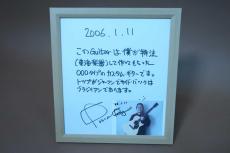 2006.1.11
このGuitarは僕が特注
(東海楽器)して作ってもらった
000タイプのカスタムギターです。
トップがジャーマンでサイドバックは
ブラジリアンであります。